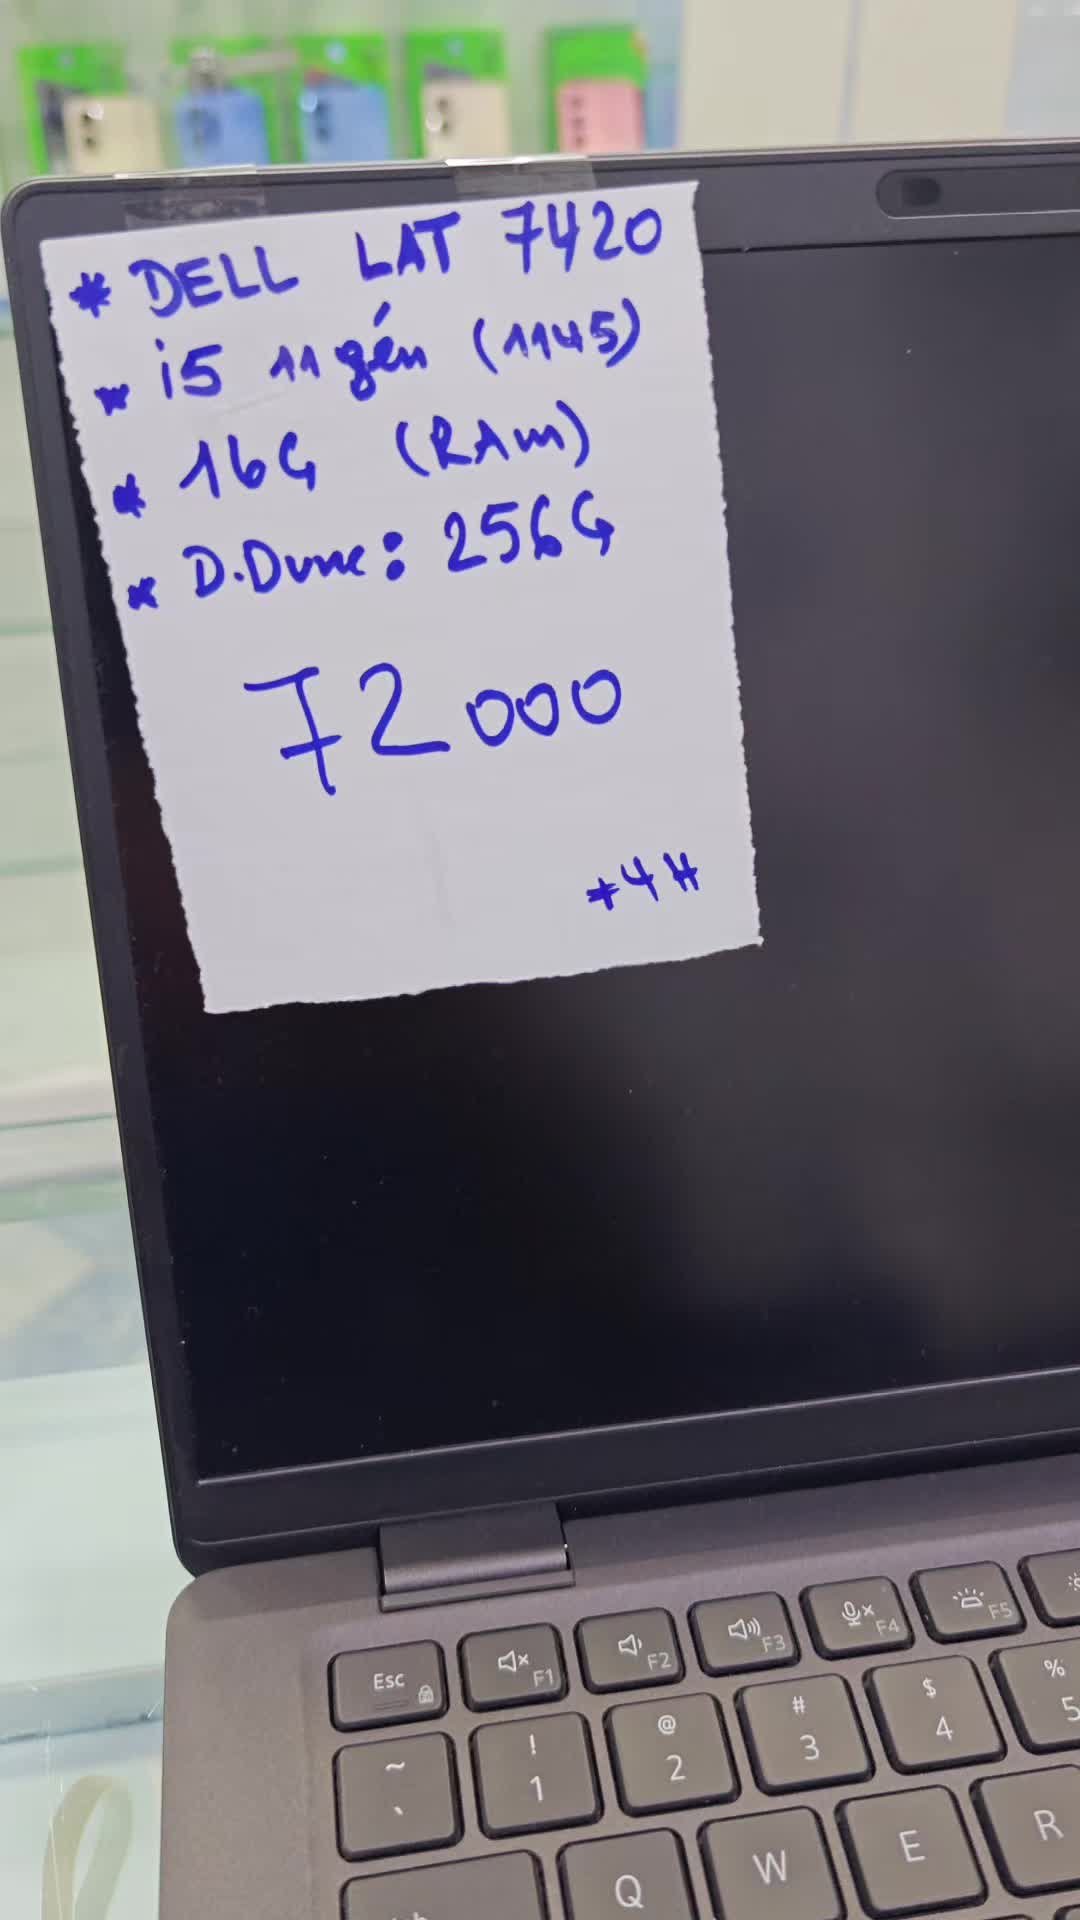 * DELL LAT 7420
* i5 11 gén (1145)
* 16G (RAM)
* D.Dure: 256G
72000
*4H
Esc F1 F2 F3 F4 F5
~ ` ! 1 @ 2 # 3 $ 4 % 5
Q W E R